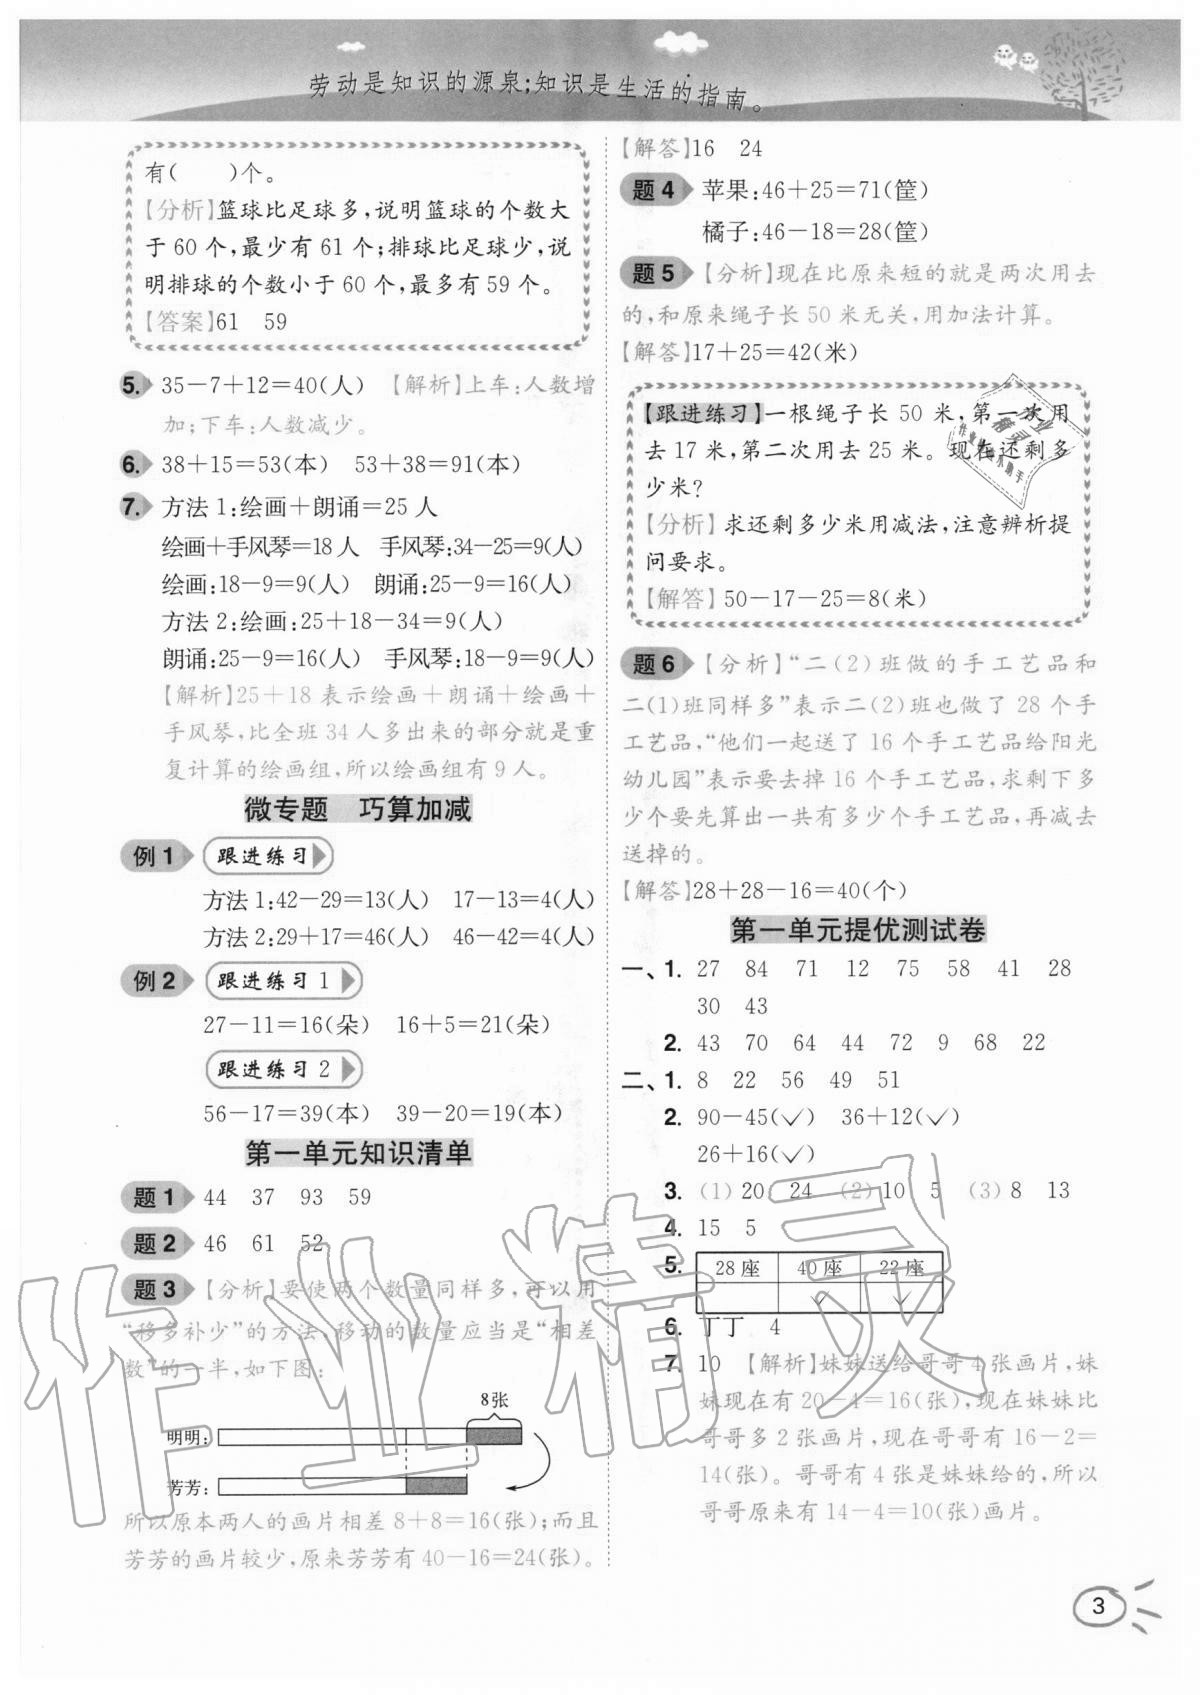 劳动是知识的源泉;知识是生活的指南。
有(　　)个。
【分析】篮球比足球多,说明篮球的个数大
于 60 个,最少有 61 个;排球比足球少,说
明排球的个数小于 60 个,最多有 59 个。
【答案】61　59
5. 35－7＋12＝40(人)　【解析】上车:人数增
加;下车:人数减少。
6. 38＋15＝53(本)　53＋38＝91(本)
7. 方法 1:绘画＋朗诵＝25 人
绘画＋手风琴＝18 人　手风琴:34－25＝9(人)
绘画:18－9＝9(人)　朗诵:25－9＝16(人)
方法 2:绘画:25＋18－34＝9(人)
朗诵:25－9＝16(人)　手风琴:18－9＝9(人)
【解析】25＋18 表示绘画＋朗诵＋绘画＋
手风琴,比全班 34 人多出来的部分就是重
复计算的绘画组,所以绘画组有 9 人。
微专题　巧算加减
例 1　跟进练习
方法 1:42－29＝13(人)　17－13＝4(人)
方法 2:29＋17＝46(人)　46－42＝4(人)
例 2　跟进练习 1
27－11＝16(朵)　16＋5＝21(朵)
跟进练习 2
56－17＝39(本)　39－20＝19(本)
第一单元知识清单
题 1　44　37　93　59
题 2　46　61　52
题 3　【分析】要使两个数量同样多,可以用
“移多补少”的方法,移动的数量应当是“相差
数”的一半,如下图:
8张
明明:
芳芳:
所以原本两人的画片相差 8＋8＝16(张);而且
芳芳的画片较少,原来芳芳有 40－16＝24(张)。
【解答】16　24
题 4　苹果:46＋25＝71(筐)
橘子:46－18＝28(筐)
题 5　【分析】现在比原来短的就是两次用去
的,和原来绳子长 50 米无关,用加法计算。
【解答】17＋25＝42(米)
【跟进练习】一根绳子长 50 米,第一次用
去 17 米,第二次用去 25 米。现在还剩多
少米?
【分析】求还剩多少米用减法,注意辨析提
问要求。
【解答】50－17－25＝8(米)
题 6　【分析】“二(2)班做的手工艺品和
二(1)班同样多”表示二(2)班也做了 28 个手
工艺品,“他们一起送了 16 个手工艺品给阳光
幼儿园”表示要去掉 16 个手工艺品,求剩下多
少个要先算出一共有多少个手工艺品,再减去
送掉的。
【解答】28＋28－16＝40(个)
第一单元提优测试卷
一、1. 27　84　71　12　75　58　41　28
30　43
2. 43　70　64　44　72　9　68　22
二、1. 8　22　56　49　51
2. 90－45(✓)　36＋12(✓)
26＋16(✓)
3. (1)20　24　(2)10　5　(3)8　13
4. 15　5
5. 28 座　40 座　22 座
✓　✓
6. 丁丁　4
7. 10　【解析】妹妹送给哥哥 4 张画片,妹
妹现在有 20－4＝16(张),现在妹妹比
哥哥多 2 张画片,现在哥哥有 16－2＝
14(张)。哥哥有 4 张是妹妹给的,所以
哥哥原来有 14－4＝10(张)画片。
作业精灵
3